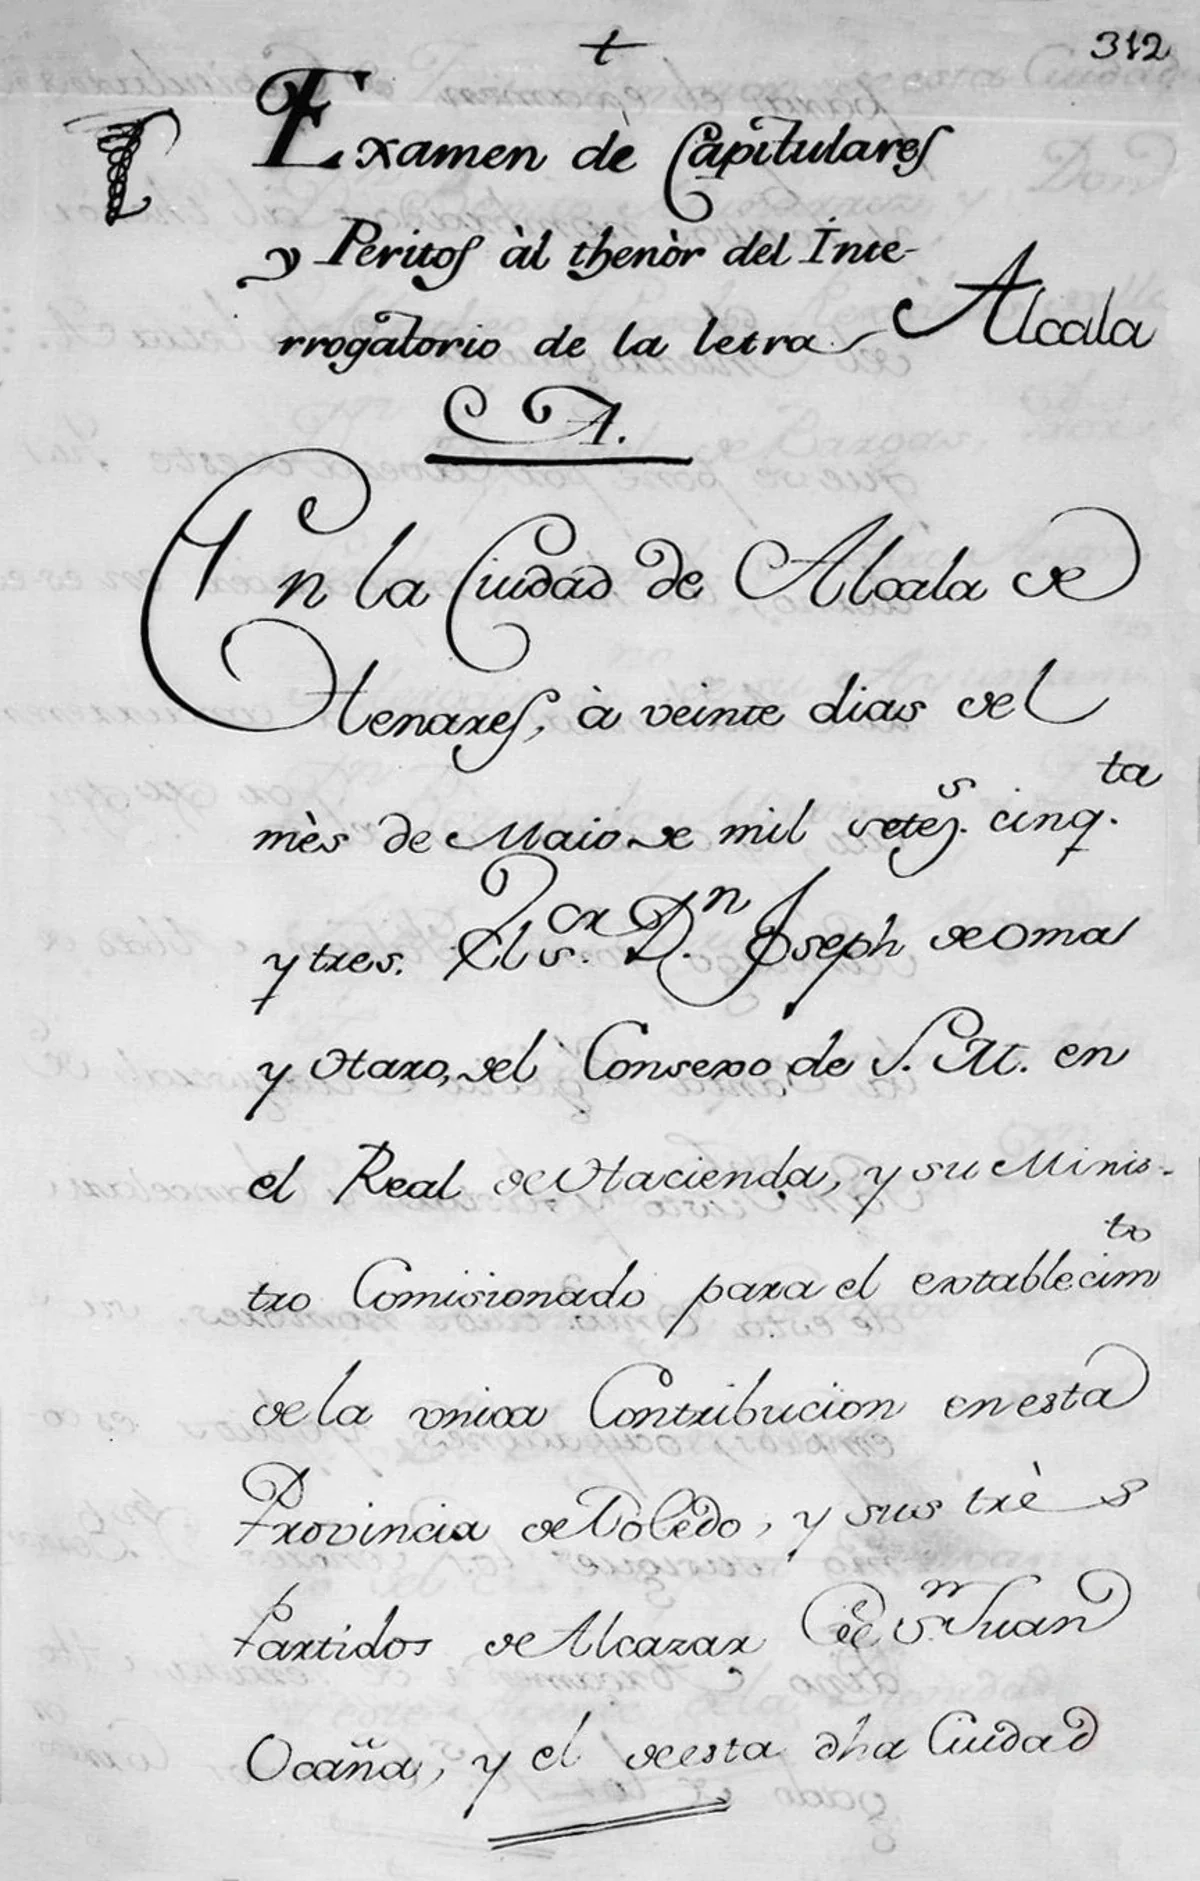 t
312
Examen dè Capitulares
y Peritos àl thenòr del Inte-
rrogatorio de la letra
Alcala
A.
En la Ciudad de Alcala de
Henares, à veinte dias del
mès de Maio de mil setez.s cinq.ta
y tres. El s.or D.n Joseph de Oma
y Haro, del Consexo de S. M. en
el Real de Hacienda, y su Minis-
tro Comisionado para el extablecimto
de la vnica Contribucion en esta
Provincia de Toledo, y sus très
Partidos de Alcazar de S.n Juan
Ocaña, y el de esta dha Ciudad